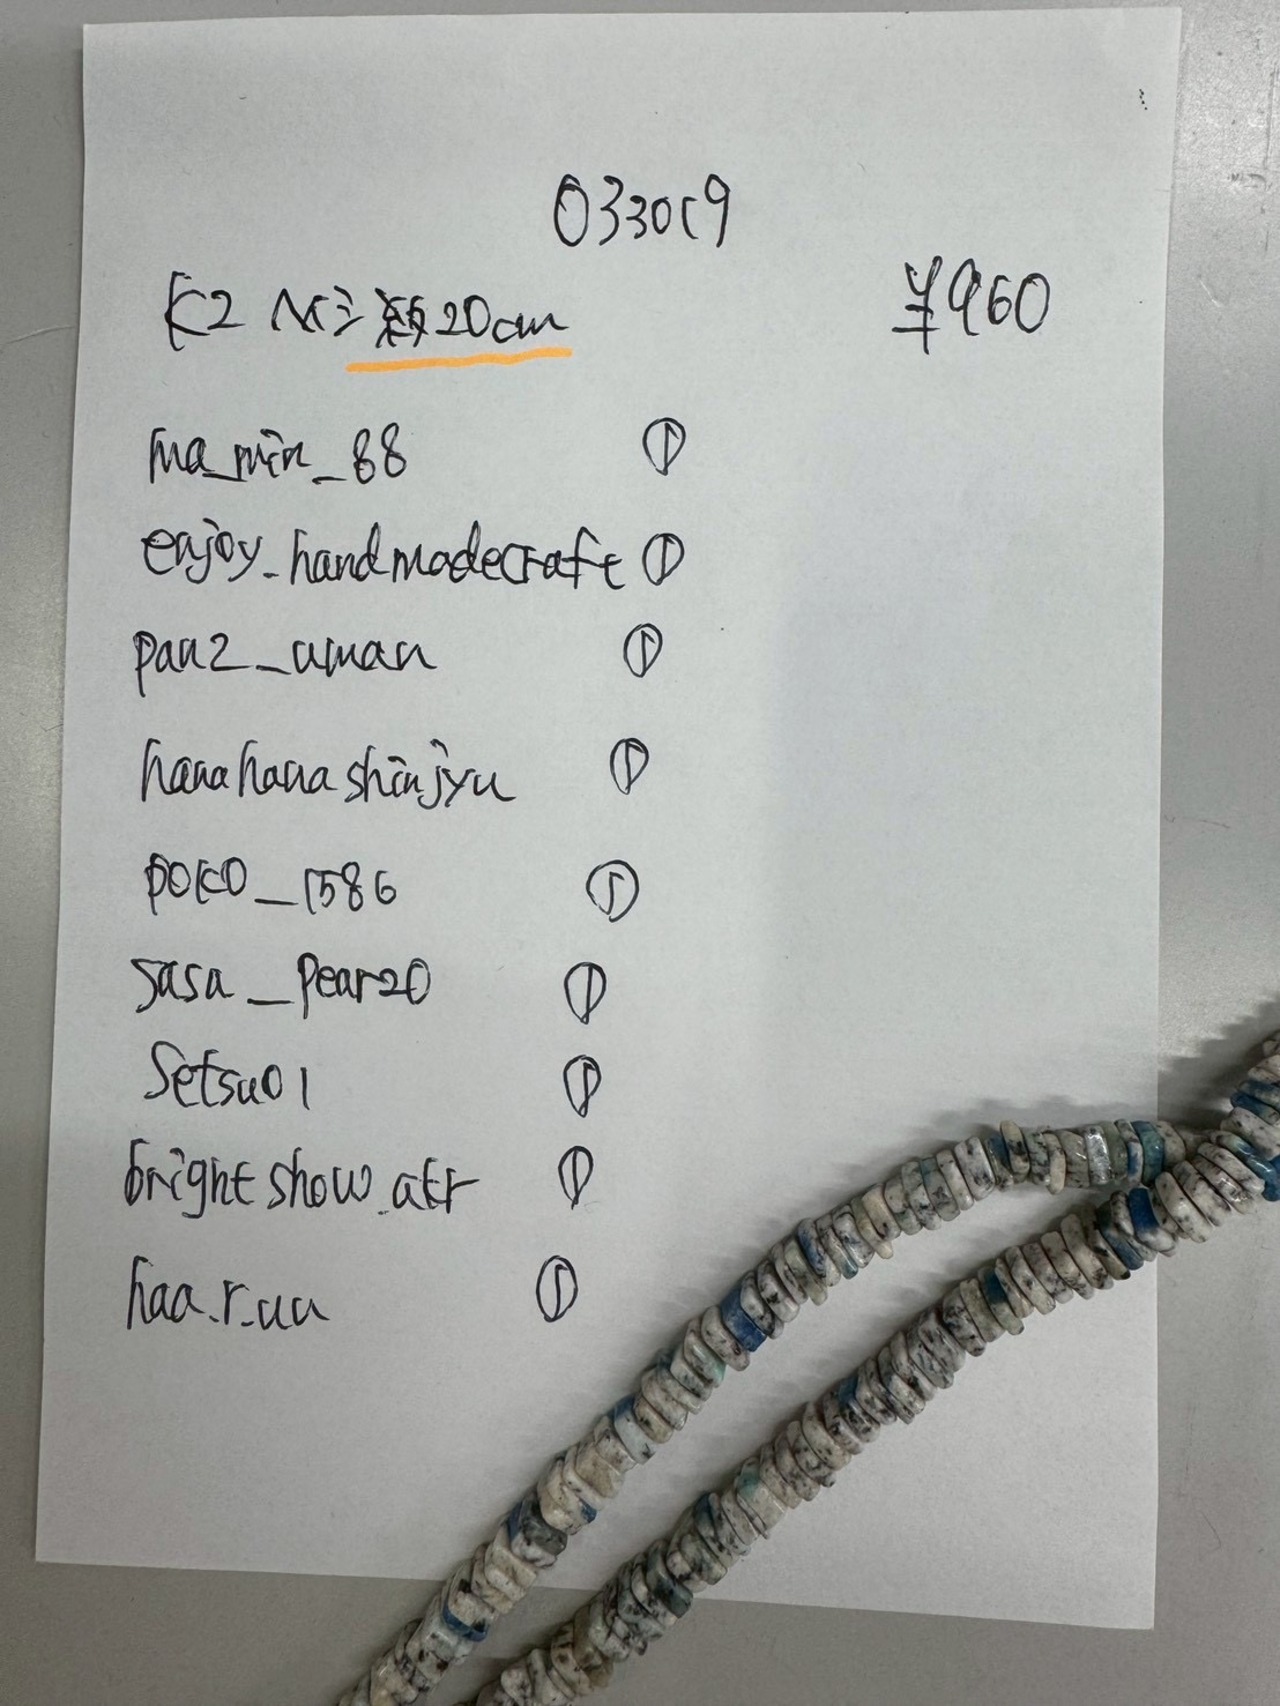 0330c9
K2 ヘイシ 約20cm
¥960
ma_min_88 ①
enjoy_handmadecraft ①
pan2_uman ①
hanahanashinjyu ①
poko_1586 ①
sasa_pear20 ①
Setsu01 ①
brightshow_atr ①
haa.r.uu ①